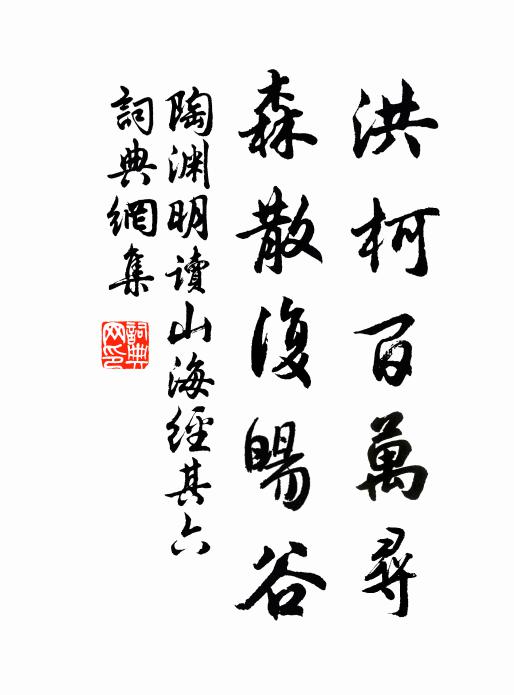 洪柯百萬尋
森散復暘谷
陶渊明讀山海經其六
詞典網集
詞典網印